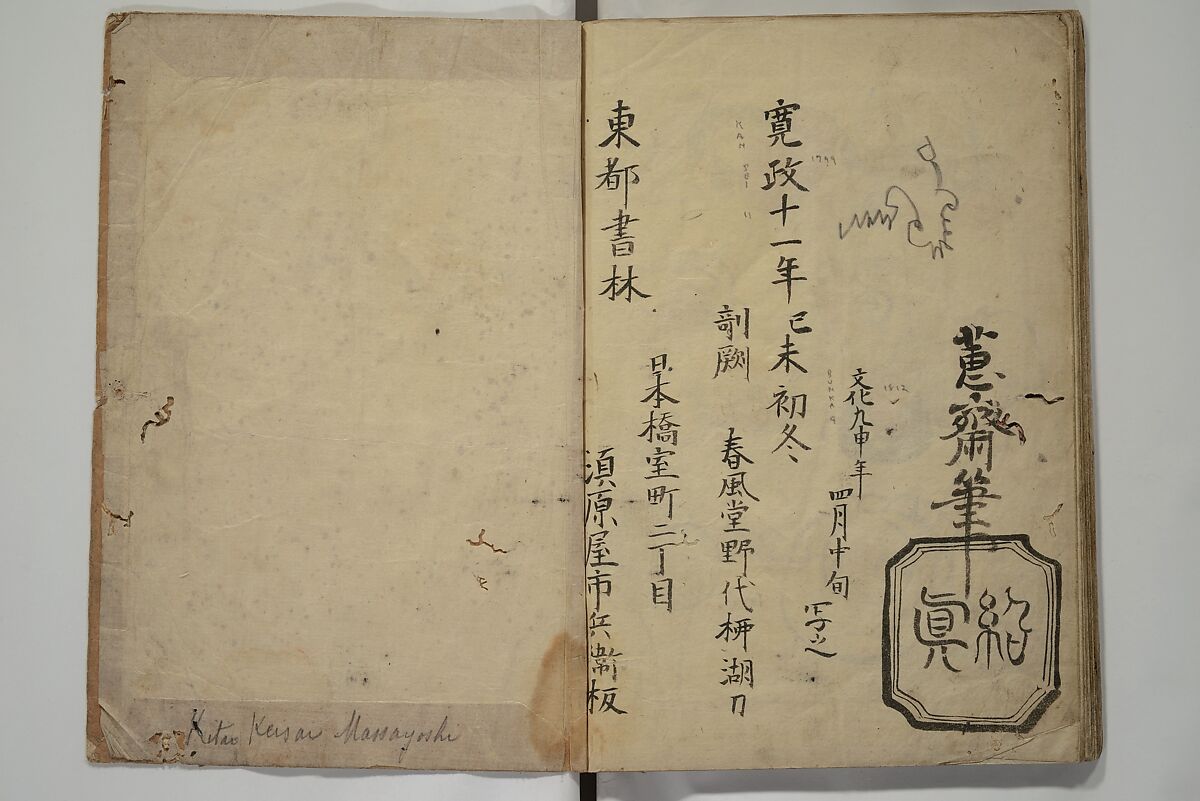 蕙齋筆
紹眞
文化九申年
四月中旬
写之
1812
BUNKA 9
寛政十一年 己未 初冬
1799
KAN SEI 11
剞劂 春風堂野代柳湖刀
日本橋室町二丁目
東都書林
湏原屋市兵衛板
Kitao Keisai Massayoshi